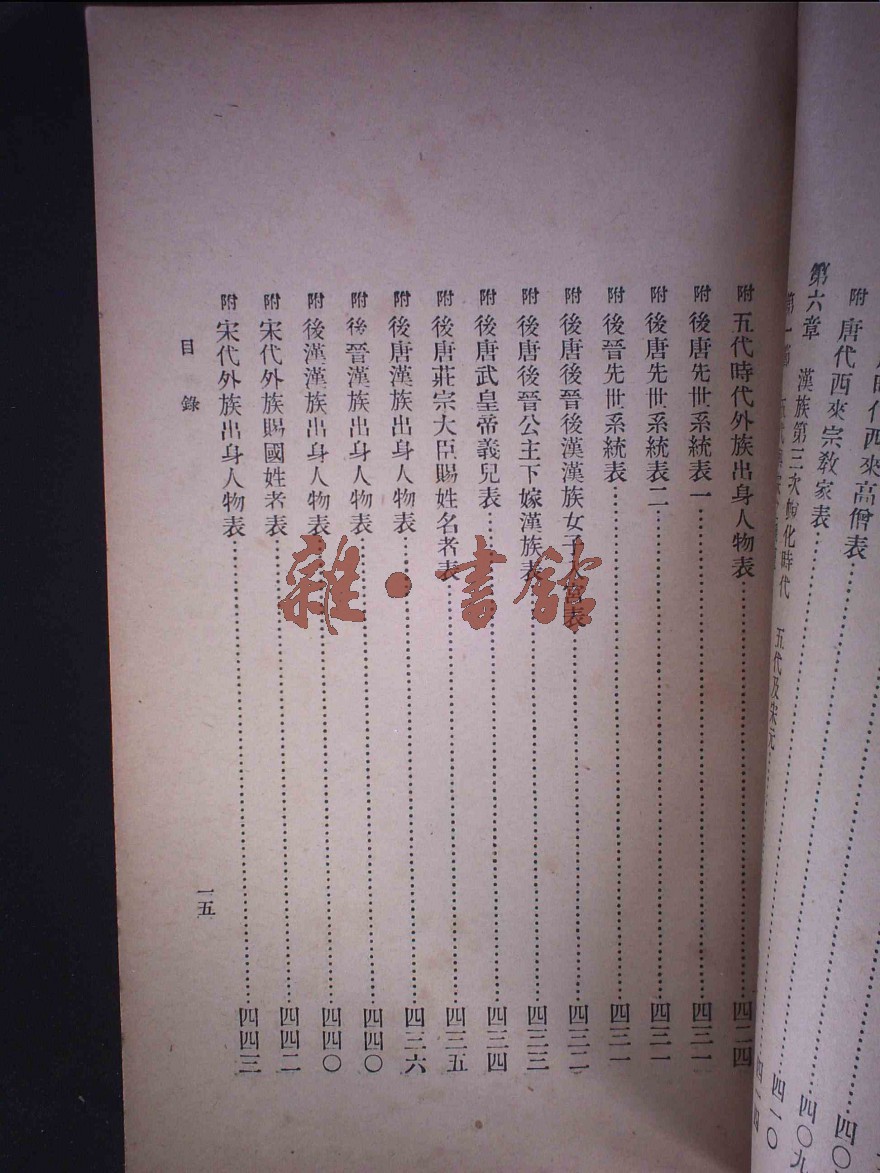 時代西來高僧表……四〇
附 唐代西來宗教家表……四〇九
第六章 漢族第三次蛻化時代 五代及宋元……四一〇
第一節
附 五代時代外族出身人物表……四二四
附 後唐先世系統表一……四三一
附 後唐先世系統表二……四三一
附 後晉先世系統表……四三一
附 後唐後晉後漢漢族女子入宮表……四三二
附 後唐後晉公主下嫁漢族表……四三三
附 後唐武皇帝義兒表……四三四
附 後唐莊宗大臣賜姓名者表……四三五
附 後唐漢族出身人物表……四三六
附 後晉漢族出身人物表……四四〇
附 後漢漢族出身人物表……四四〇
附 宋代外族賜國姓者表……四四二
附 宋代外族出身人物表……四四三
目錄
一五
雜·書館